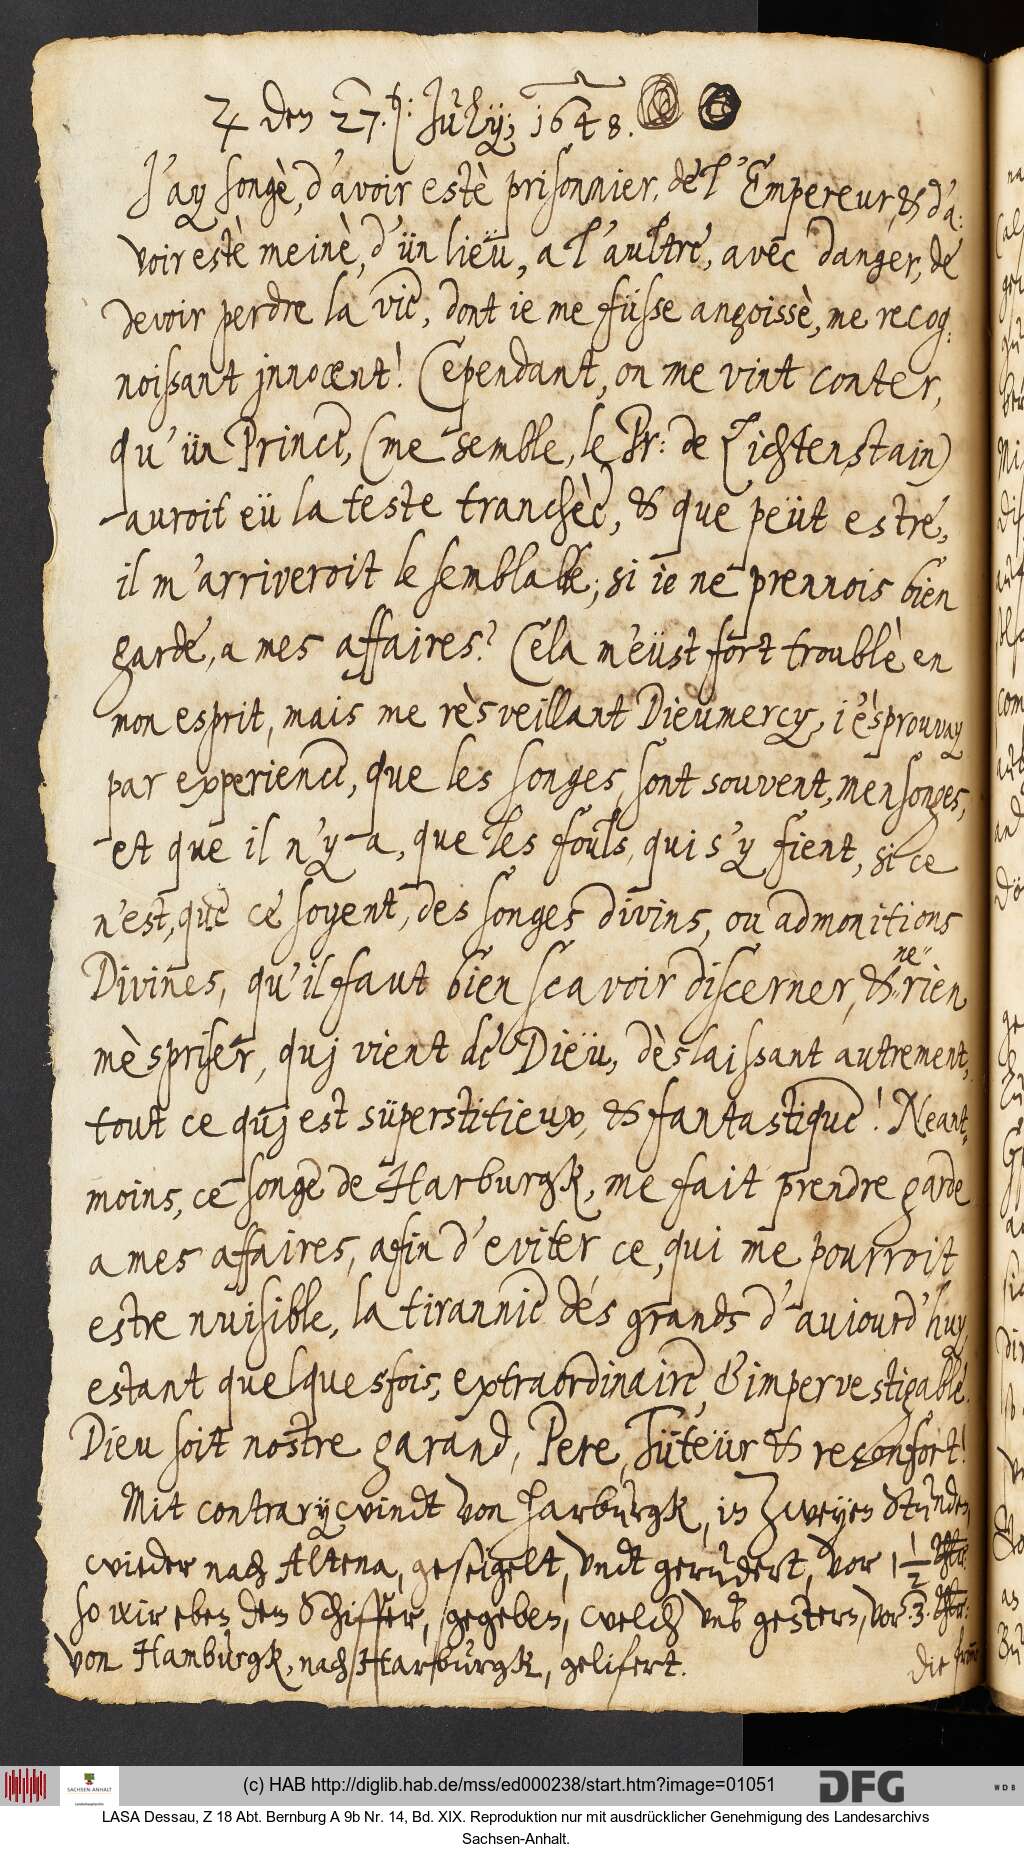 ♃ den 27.ten: Julÿ; 1648.
J'ay songè, d'avoir estè prisonnier, de l'Empereur, & d'a:
voir estè meinè, d'ün lieü, a l'aultre, avec danger, de
devoir perdre la vie, dont ie me füsse angoissè, me recog:
noissant jnnocent! Cependant, on me vint conter,
qu'ün Prince, (me semble, le Pr: de Lichtenstain)
auroit eü la teste tranchèe, & que peüt estre,
il m'arriveroit le semblable; si ie ne prennois bien
garde, a mes affaires? Cela m'eüst fort troublè en
mon esprit, mais me rèsveillant Dieumercy, i'èsprouvay
par experience, que les songes, sont souvent, mensonges,
et que il n'y-a, que les fouls, qui s'y fient, si ce
n'est, que ce soyent, des songes divins, ou admonitions
Divines, qu'il faut bien scavoir discerner, & ne rien
mèspriser, quj vient de Dieü, dèslaissant autrement,
tout ce quj est süperstitieux, & fantastique! Neant-
moins, ce songe de Harburgk, me fait prendre garde
a mes affaires, afin d'eviter ce, qui me pourroit
estre nuisible, la tirannie des grands d'aujourd'huy,
estant quelquesfois, extraordinaire, & impervestigable.
Dieu soit nostre garand, Pere, Tüteür & reconfort!
Mit contrarÿ windt von Harburgk, in zweyen Stunden,
wieder nach Altena, geseigelt, undt gerudert, vor 1 1/2 Thlr:
so wir eben dem Schiffer, gegeben, welch uns gestern, vor 3 Thlr:
von Hamburgk, nach Harburgk, gelifert.
Die
(c) HAB http://diglib.hab.de/mss/ed000238/start.htm?image=01051
SACHSEN-ANHALT
DFG
WDB
LASA Dessau, Z 18 Abt. Bernburg A 9b Nr. 14, Bd. XIX. Reproduktion nur mit ausdrücklicher Genehmigung des Landesarchivs
Sachsen-Anhalt.